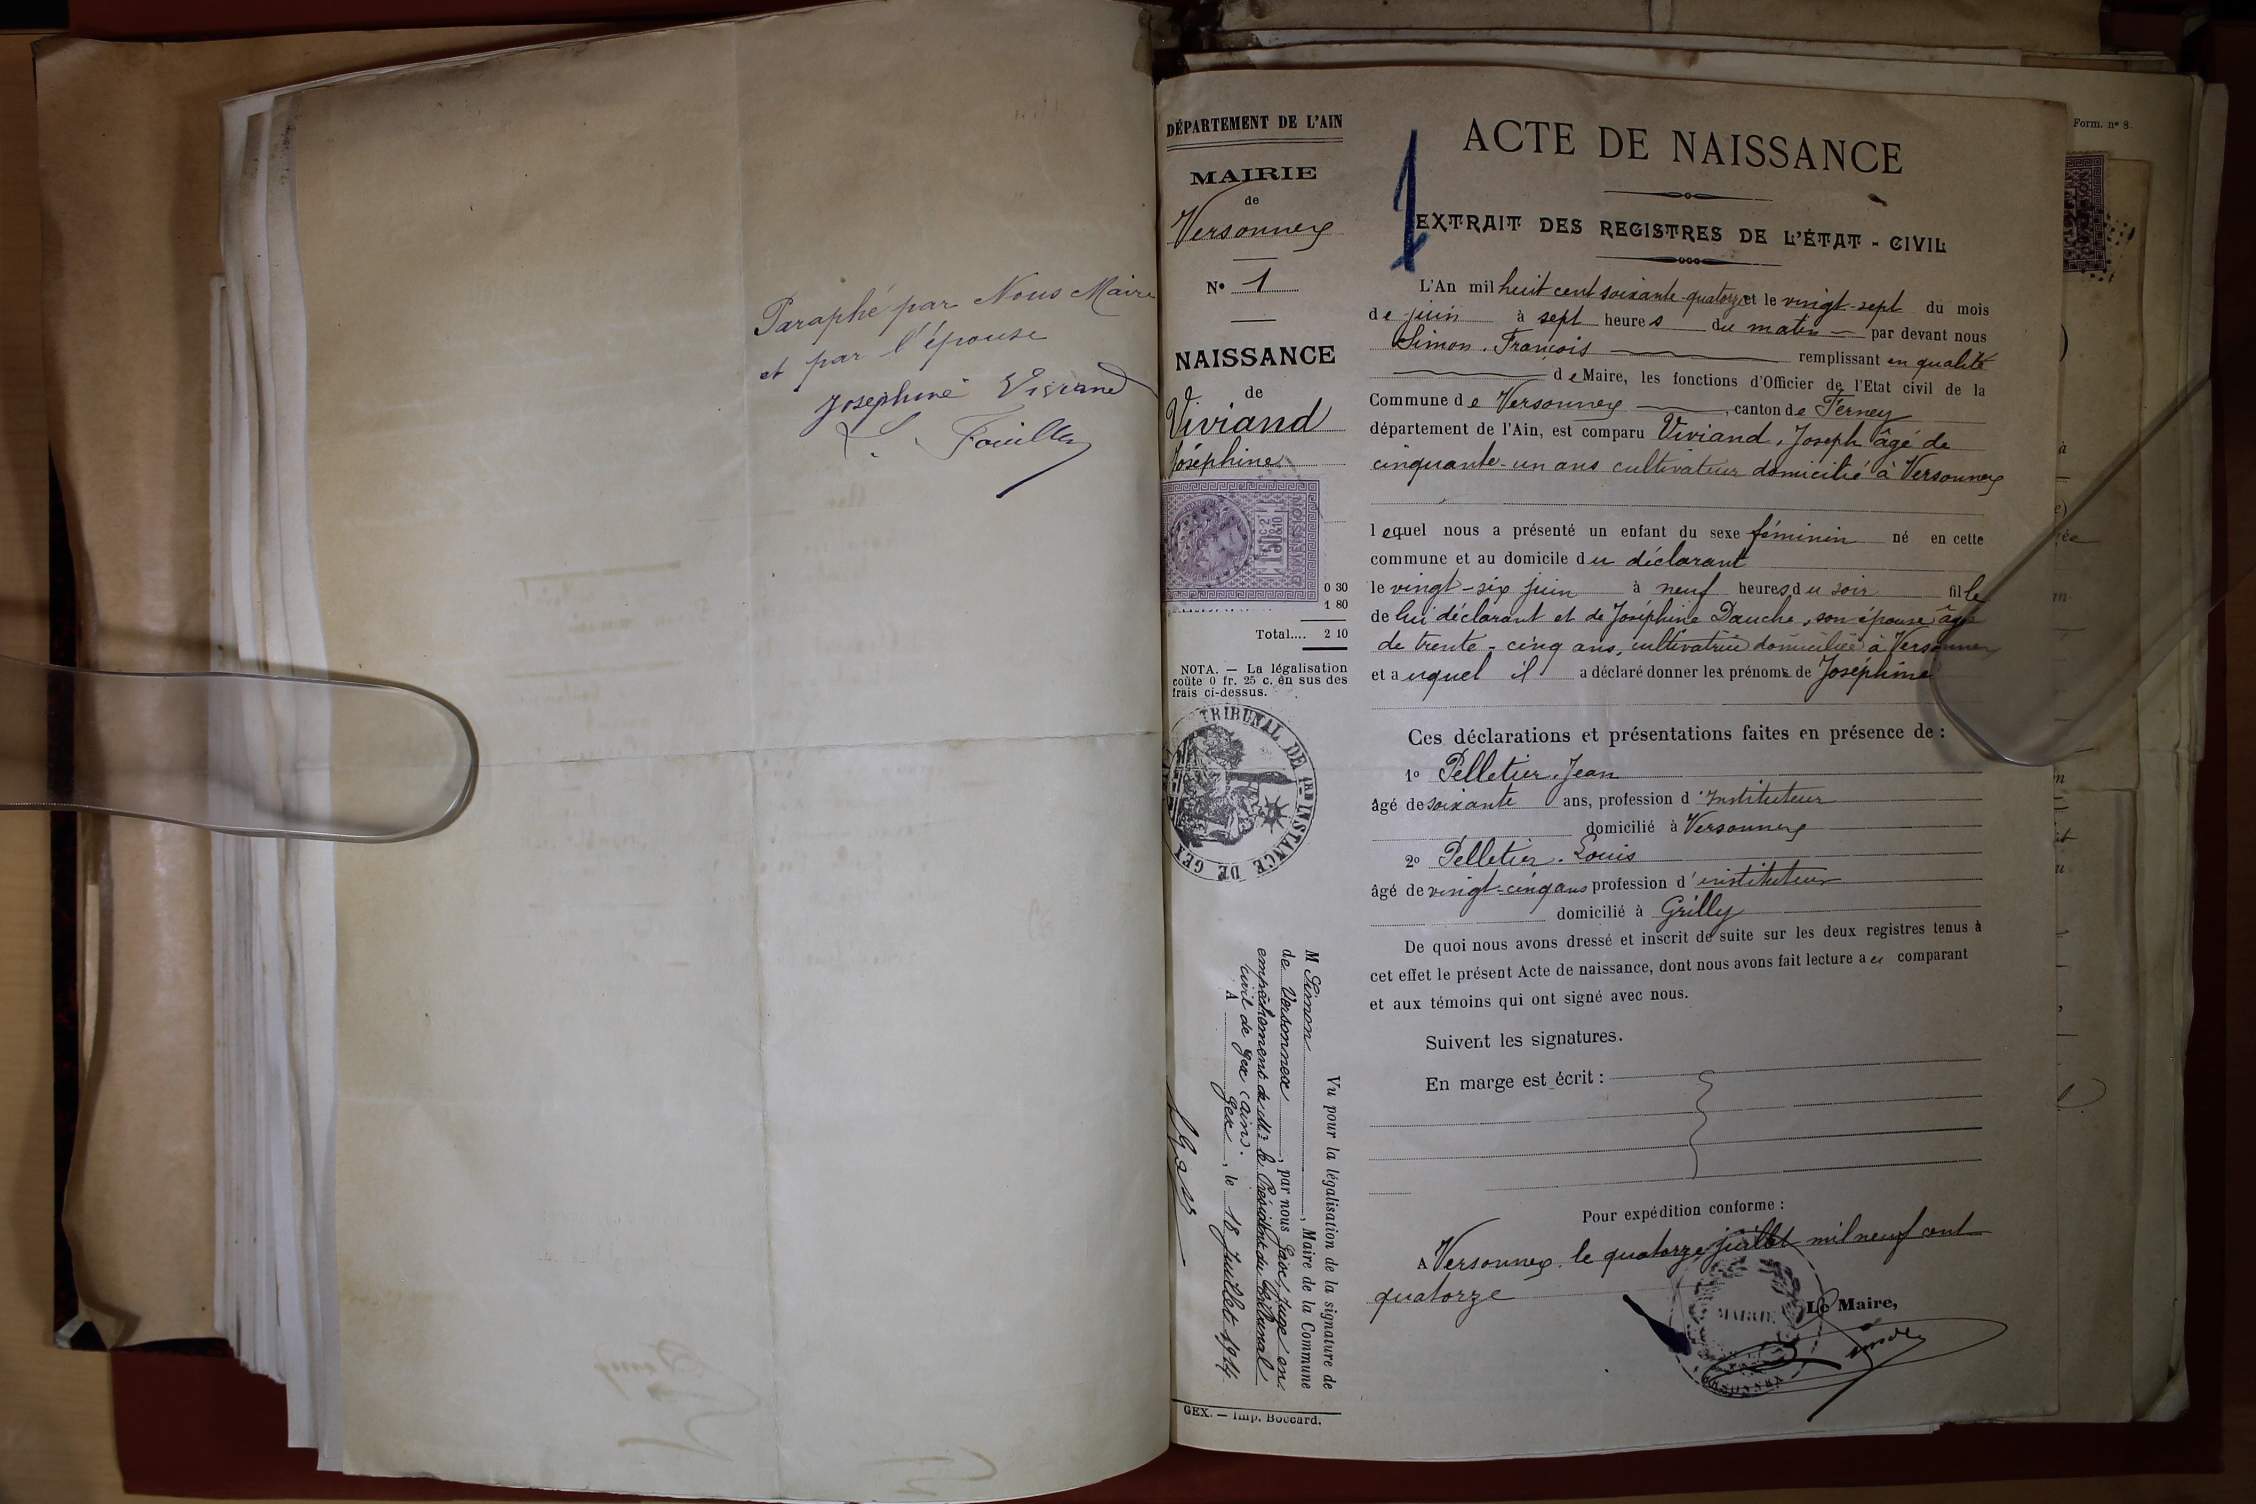 Paraphé par Nous Maire
et par l'épouse
Joséphine Viviand
DÉPARTEMENT DE L'AIN
MAIRIE
de
Versonnex
N° 1
NAISSANCE
de
Viviand
Joséphine
DIMENSION
0 30
1 80
Total.... 2 10
NOTA. — La légalisation
coûte 0 fr. 25 c. en sus des
frais ci-dessus.
TRIBUNAL DE 1RE INSTANCE DE GEX
Vu pour la légalisation de la signature de
M Simon, Maire de la Commune
de Versonnex, par nous juge en
empêchement de Mr le Président du Tribunal
civil de Gex (Ain).
A Gex, le 18 Juillet 1914
GEX. — Imp. Boccard.
ACTE DE NAISSANCE
1
EXTRAIT DES REGISTRES DE L'ÉTAT-CIVIL
L'An mil huit cent soixante-quatorze et le vingt-sept du mois
de juin à sept heures du matin par devant nous
Simon, François remplissant en qualité
de Maire, les fonctions d'Officier de l'Etat civil de la
Commune de Versonnex, canton de Ferney
département de l'Ain, est comparu Viviand, Joseph âgé de
cinquante-un ans cultivateur domicilié à Versonnex
lequel nous a présenté un enfant du sexe féminin né en cette
commune et au domicile du déclarant
le vingt-six juin à neuf heures du soir fille
de lui déclarant et de Joséphine Dauche, son épouse âgée
de trente-cinq ans, cultivatrice domiciliée à Versonnex
et auquel il a déclaré donner les prénoms de Joséphine
Ces déclarations et présentations faites en présence de :
1° Pelletier, Jean
âgé de soixante ans, profession d'instituteur
domicilié à Versonnex
2° Pelletier, Louis
âgé de vingt-cinq ans profession d'instituteur
domicilié à Grilly
De quoi nous avons dressé et inscrit de suite sur les deux registres tenus à
cet effet le présent Acte de naissance, dont nous avons fait lecture au comparant
et aux témoins qui ont signé avec nous.
Suivent les signatures.
En marge est écrit :
Pour expédition conforme :
A Versonnex, le quatorze juillet mil neuf cent
quatorze
Le Maire,
MAIRIE
VERSONNEX
Form. n° 8.